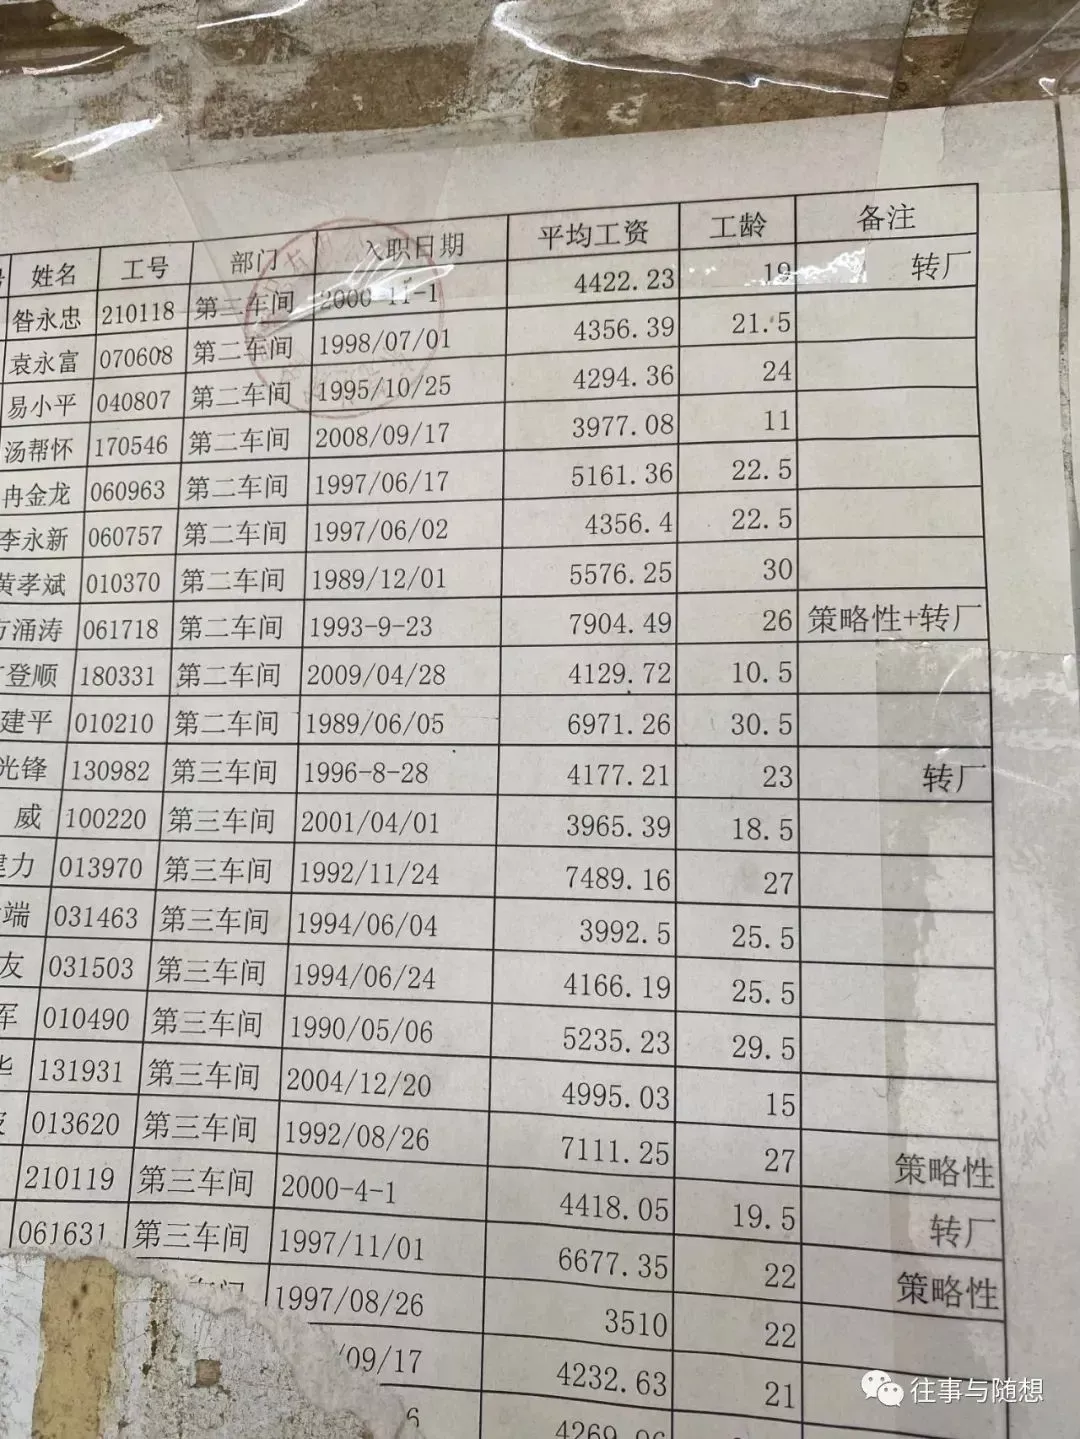 姓名 工号 部门 入职日期 平均工资 工龄 备注
昝永忠 210118 第二车间 2000-11-1 4422.23 19 转厂
袁永富 070608 第二车间 1998/07/01 4356.39 21.5
易小平 040807 第二车间 1995/10/25 4294.36 24
汤帮怀 170546 第二车间 2008/09/17 3977.08 11
冉金龙 060963 第二车间 1997/06/17 5161.36 22.5
李永新 060757 第二车间 1997/06/02 4356.4 22.5
黄孝斌 010370 第二车间 1989/12/01 5576.25 30
方涌涛 061718 第二车间 1993-9-23 7904.49 26 策略性+转厂
登顺 180331 第二车间 2009/04/28 4129.72 10.5
建平 010210 第二车间 1989/06/05 6971.26 30.5
光锋 130982 第三车间 1996-8-28 4177.21 23 转厂
威 100220 第三车间 2001/04/01 3965.39 18.5
建力 013970 第三车间 1992/11/24 7489.16 27
端 031463 第三车间 1994/06/04 3992.5 25.5
友 031503 第三车间 1994/06/24 4166.19 25.5
军 010490 第三车间 1990/05/06 5235.23 29.5
华 131931 第三车间 2004/12/20 4995.03 15
013620 第三车间 1992/08/26 7111.25 27 策略性
210119 第三车间 2000-4-1 4418.05 19.5 转厂
061631 第三车间 1997/11/01 6677.35 22 策略性
1997/08/26 3510 22
/09/17 4232.63 21
6 4269.06
往事与随想